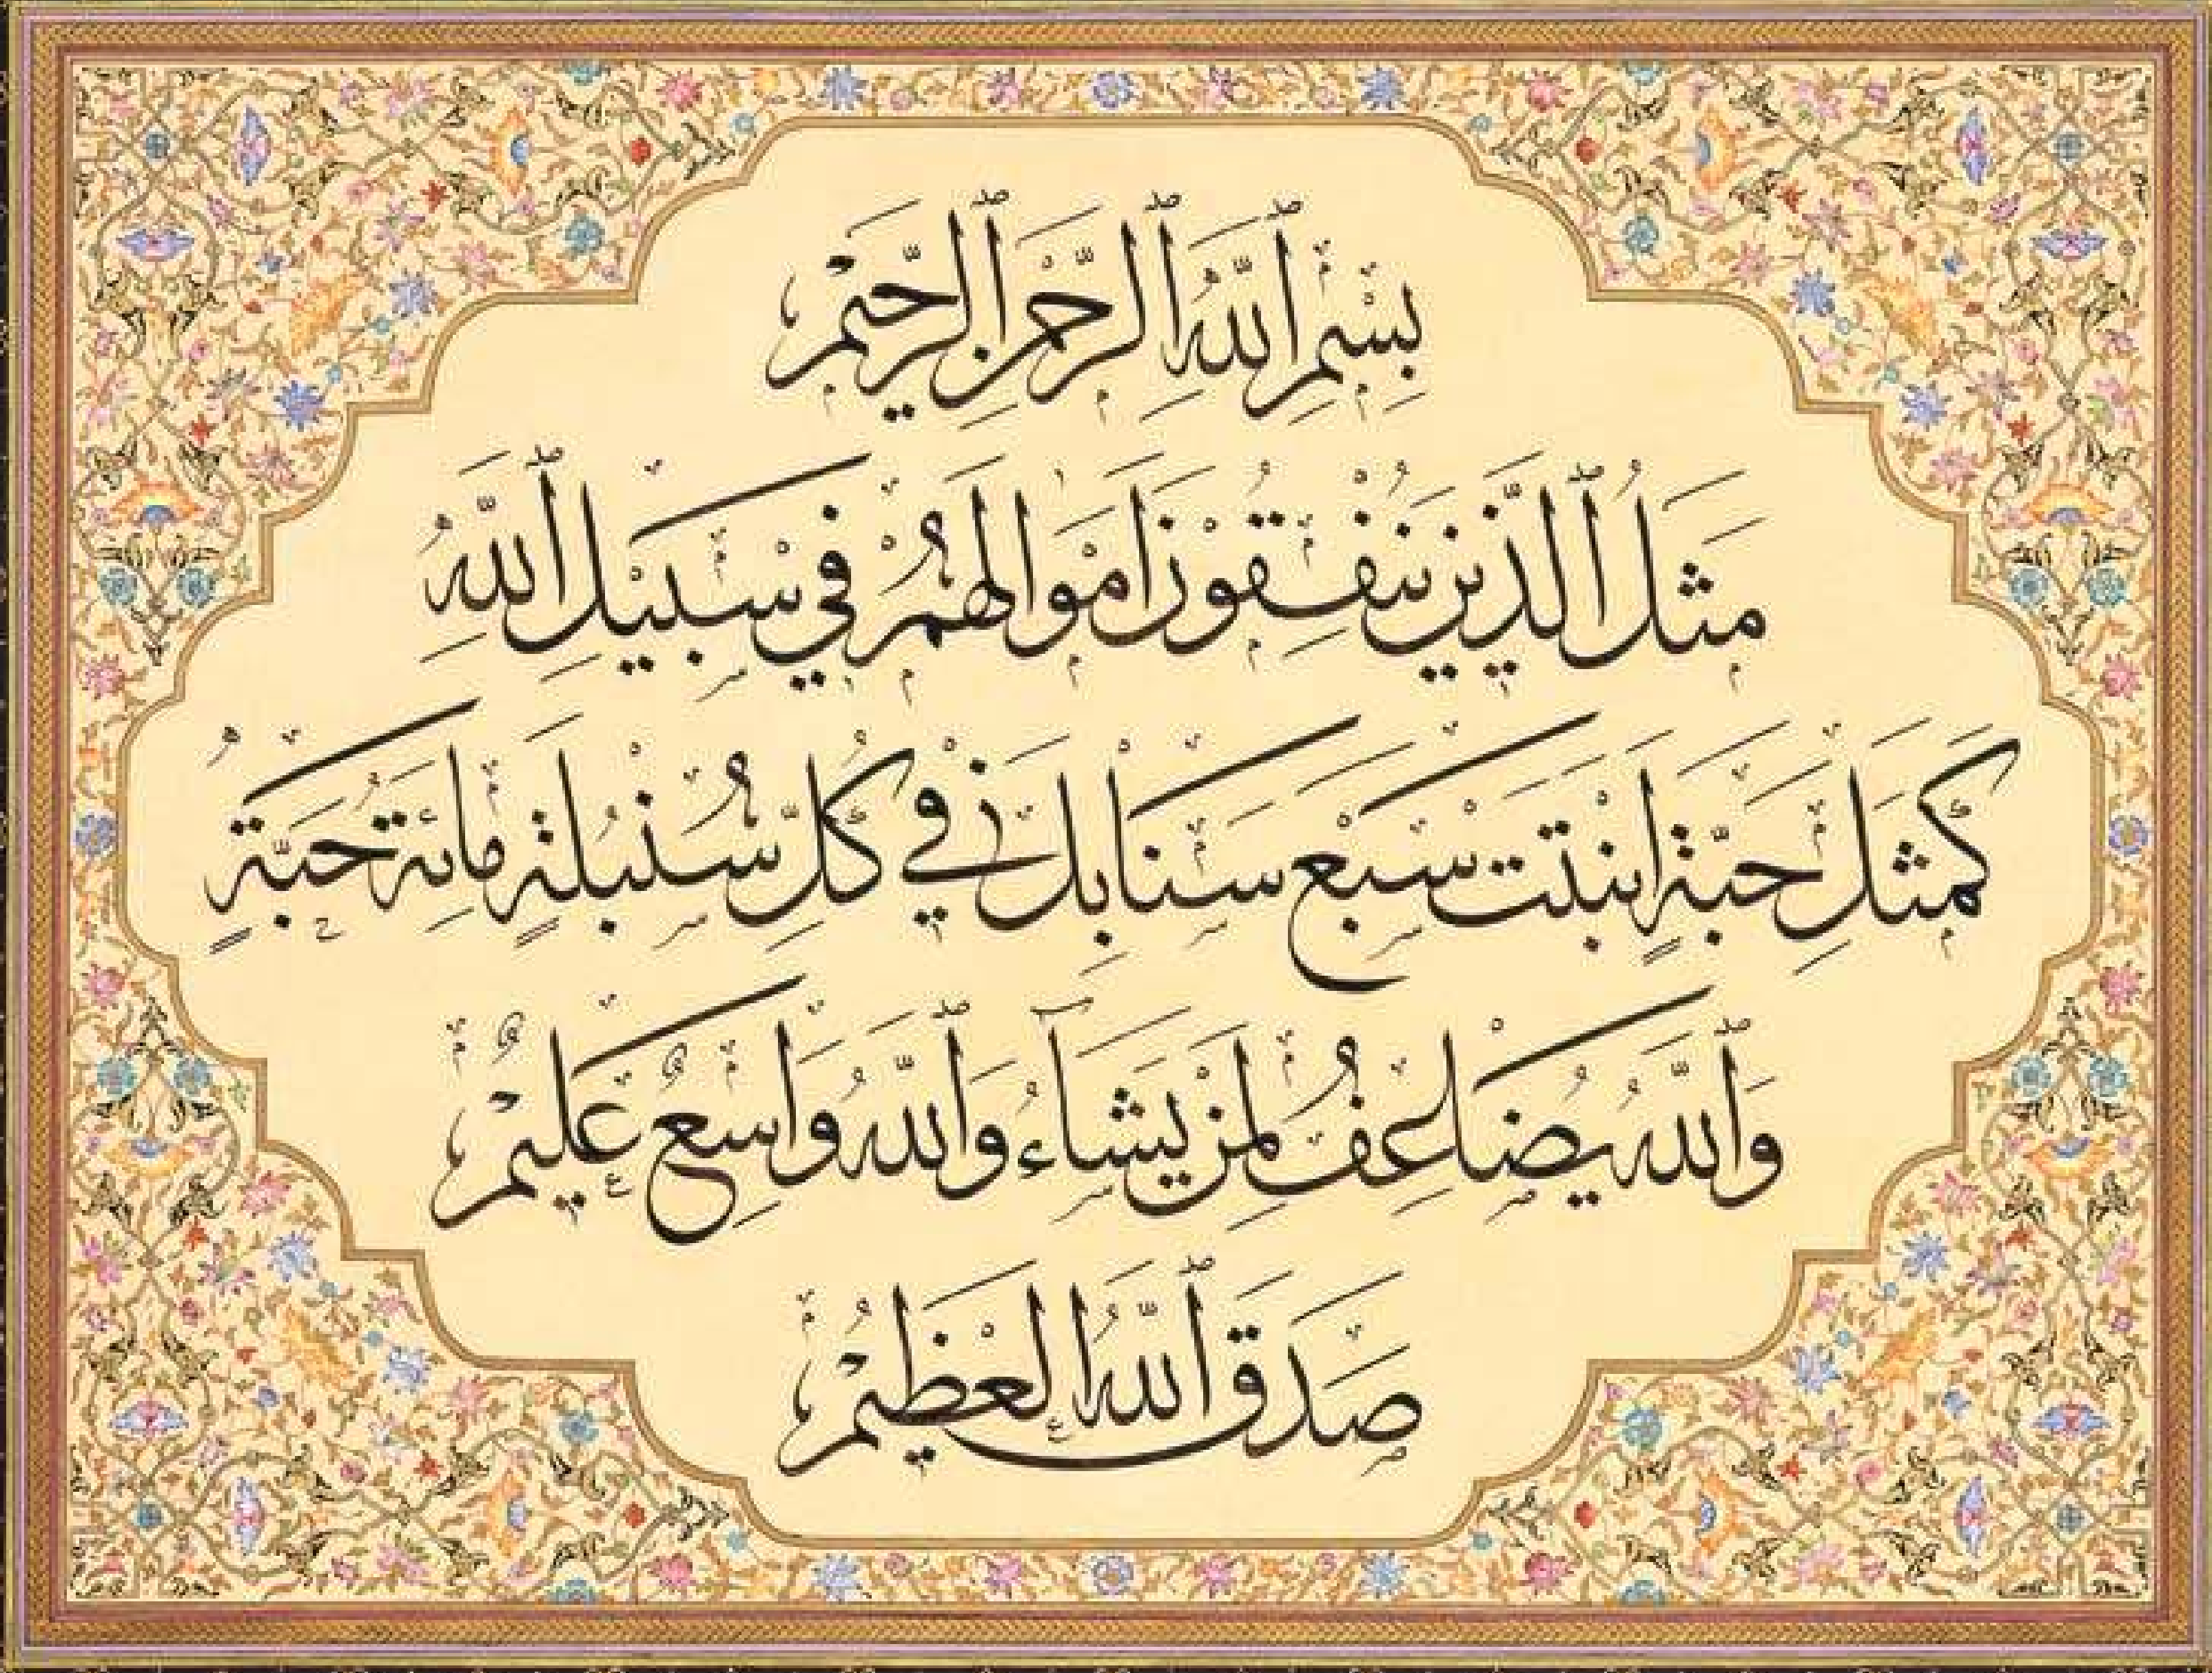 بِسْمِ ٱللَّهِ ٱلرَّحْمَنِ ٱلرَّحِيمِ
مَثَلُ ٱلَّذِينَ يُنْفِقُونَ أَمْوَالَهُمْ فِي سَبِيلِ ٱللَّهِ
كَمَثَلِ حَبَّةٍ أَنْبَتَتْ سَبْعَ سَنَابِلَ فِي كُلِّ سُنْبُلَةٍ مِائَةُ حَبَّةٍ
وَٱللَّهُ يُضَاعِفُ لِمَنْ يَشَآءُ وَٱللَّهُ وَاسِعٌ عَلِيمٌ
صَدَقَ ٱللَّهُ الْعَظِيمُ